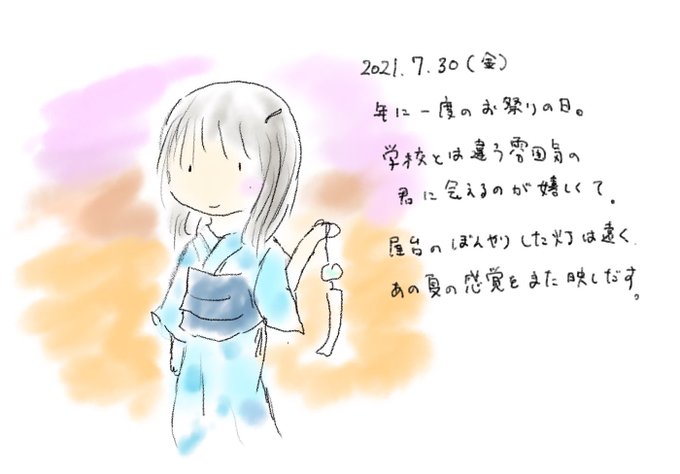 2021.7.30(金)
年に一度のお祭りの日。
学校とは違う雰囲気の
君に会えるのが嬉しくて。
屋台のぼんやりした灯は遠く
あの夏の感覚をまた映しだす。